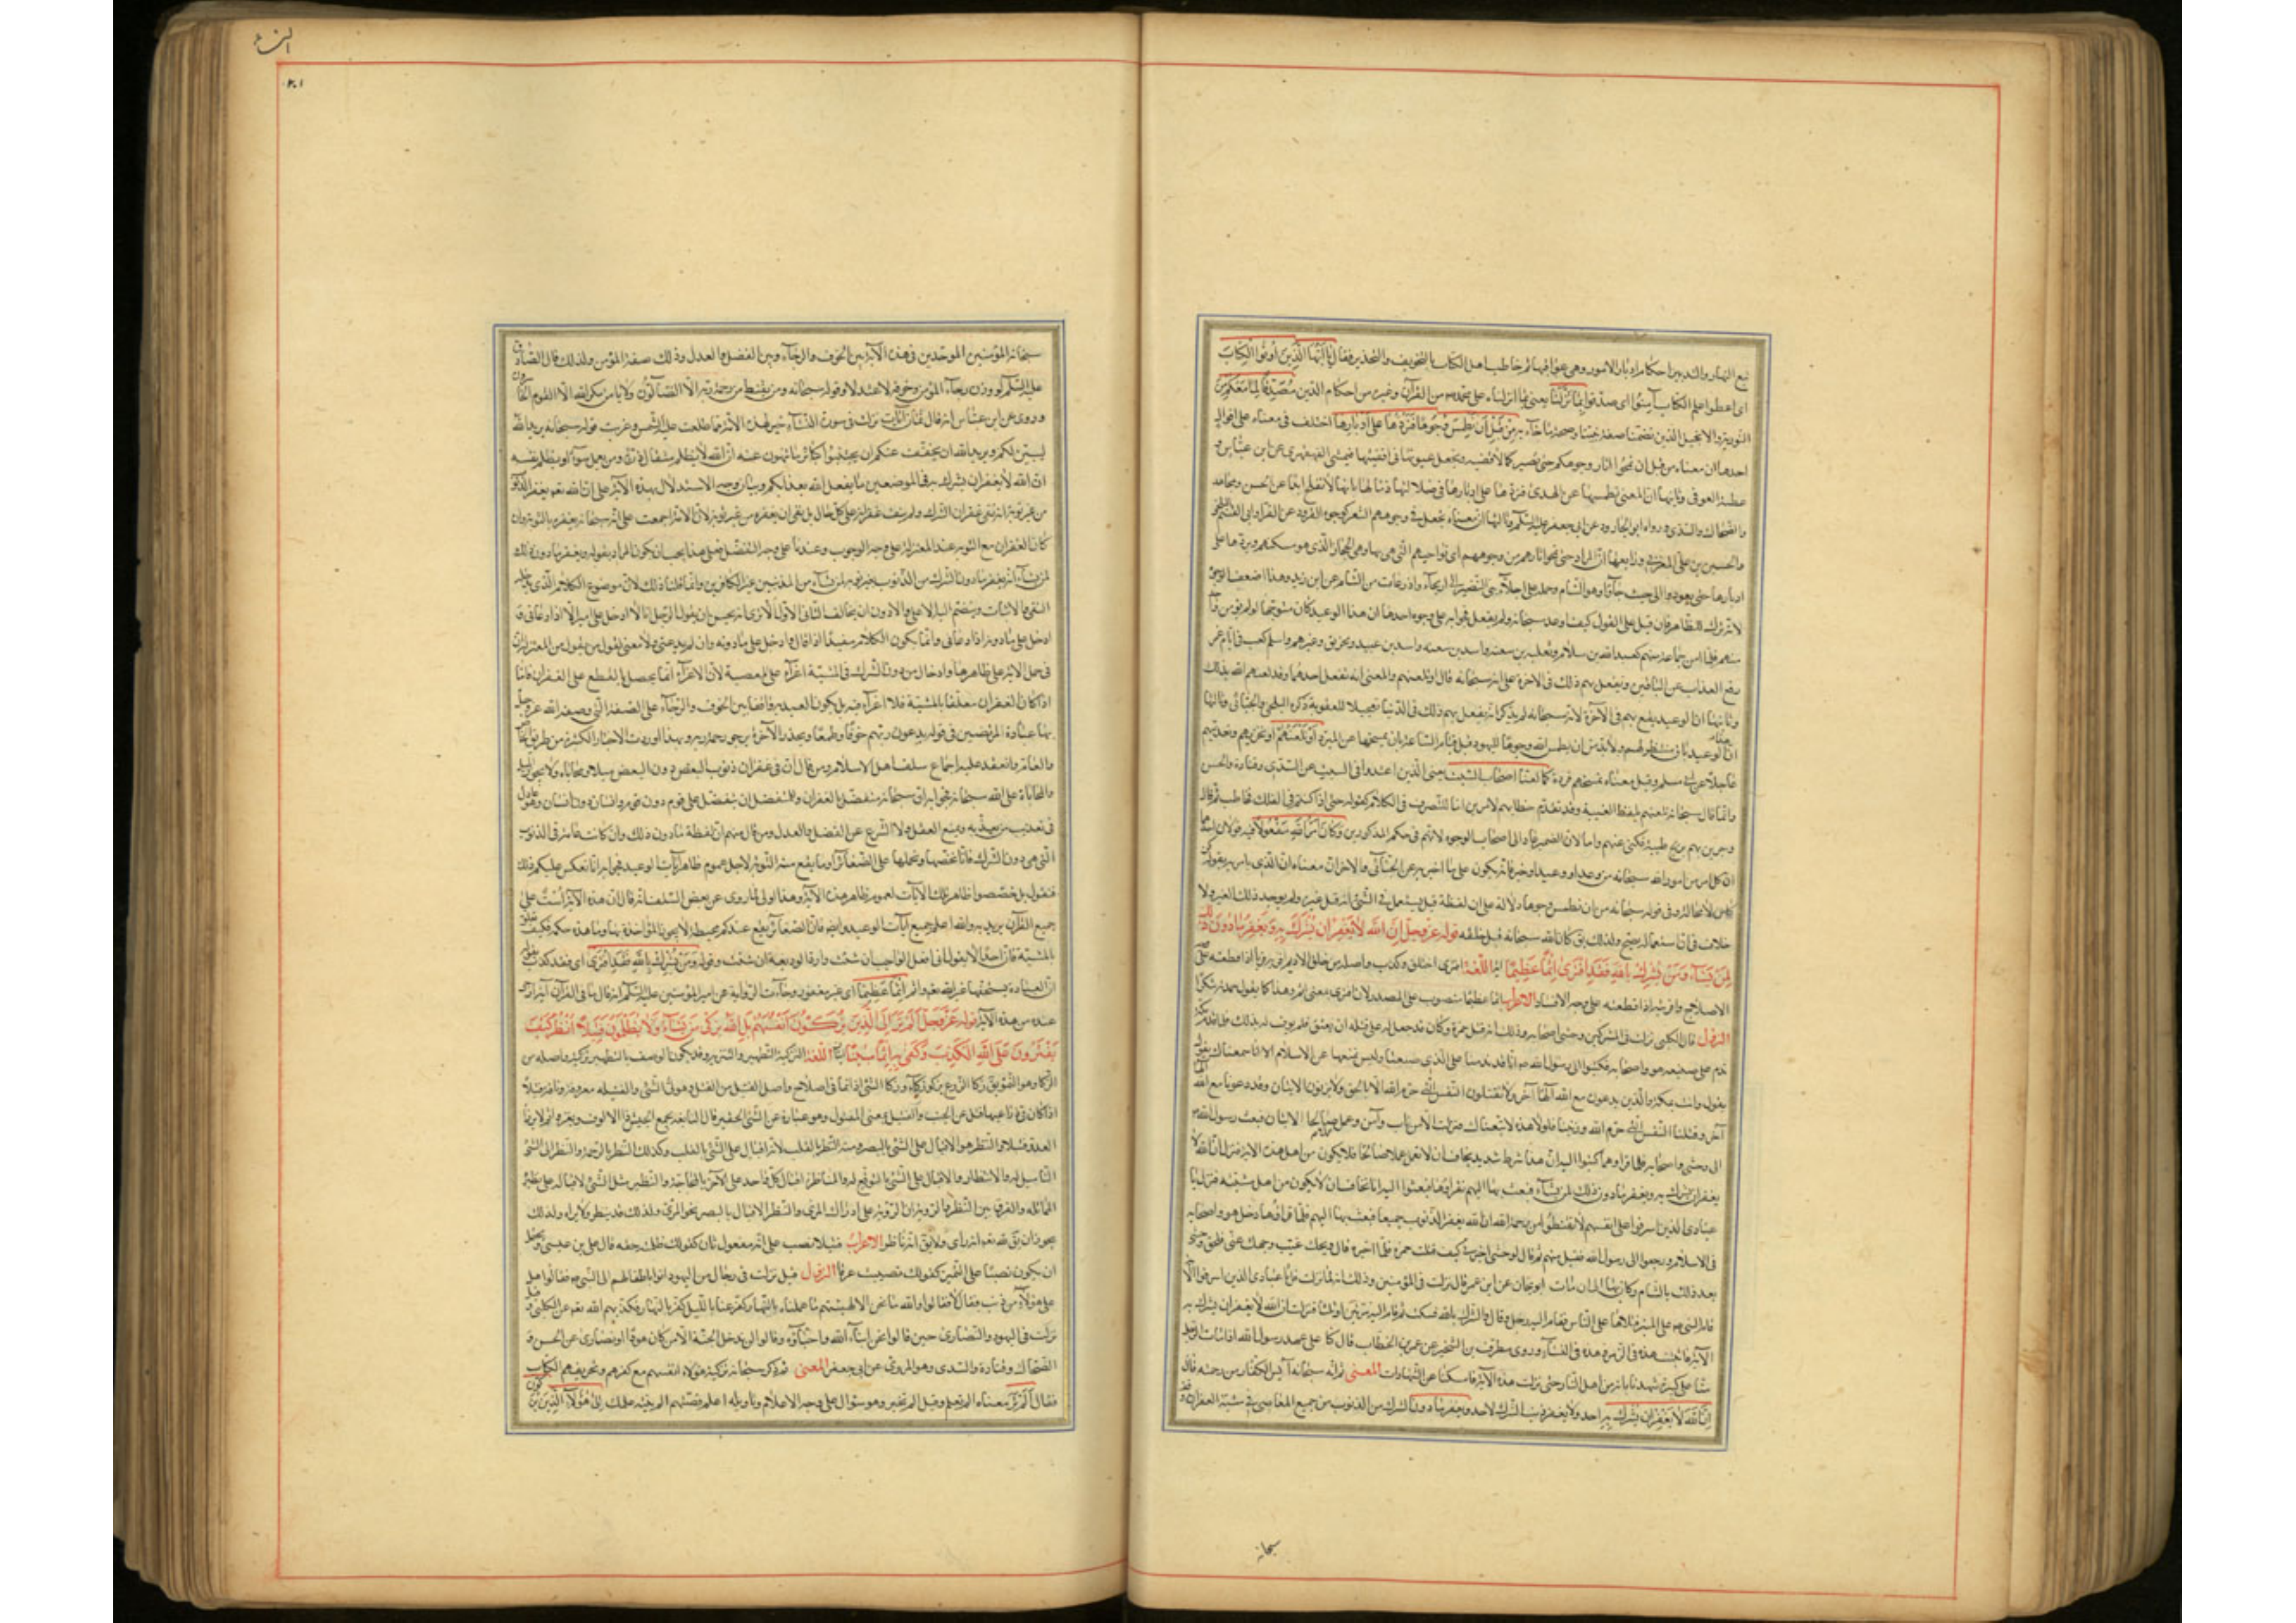 تبع النهار والتدبير احكام ادبار الامور وهي عواقبها ثم خاطب اهل الكتاب بالتخويف والتحذير فقال يا ايها الذين اوتوا الكتاب
اى اعطوا علم الكتاب آمنوا اى صدقوا بما نزلنا يعنى بما انزلناه على محمد من القرآن وغيره من احكام الدين مصدقا لما معكم من
التورية والانجيل الذين تضمنا صفة نبينا وصحة ما جاء به من قبل ان نطمس وجوها فنردها على ادبارها اختلف فى معناه على اقوال
احدها ان معناه من قبل ان نمحو آثار وجوهكم حتى تصير كالاقفية ونجعل عيونها فى اقفيتها فتمشى القهقرى عن ابن عباس و
عطية العوفى وثانيها ان المعنى نطمسها عن الهدى فنردها على ادبارها فى ضلالتها ذما لها بانها لا تفلح ابدا عن الحسن ومجاهد
والضحاك والسدى ورواه ابو الجارود عن ابى جعفر عليه السلم وثالثها ان معناه نجعل فى وجوههم الشعر كوجوه القرود عن الفراء وابى القسم البلخى
والحسين بن على المغربى ورابعها ان المراد حتى نمحو آثارهم من وجوههم اى نواحيهم التى هى بها وهى الحجاز الذى هو مسكنهم ونردها على
ادبارها حتى يعودوا الى حيث جاؤا وهو الشام وحمله على اجلاء بنى النضير الى اريحاء واذرعات من الشام عن ابن زيد وهذا اضعف الوجوه
لانه ترك للظاهر فان قيل على القول كيف اوعد سبحانه ولم يفعل فجوابه على وجوه احدها ان هذا الوعيد كان متوجها لو لم يؤمن واحد
منهم فلما امن جماعة منهم كعبد الله بن سلام وثعلبة بن سعنه واسد بن سعنه واسد بن عبيد ومخريق وغيرهم واسلم كعب فى ايام عمر
رفع العذاب عن الباقين ويفعل بهم ذلك فى الاخرة على انه سبحانه قال او نلعنهم والمعنى انه نفعل احدهما وقد لعنهم الله بذلك
وثانيها ان الوعيد يقع بهم فى الآخرة لانه سبحانه لم يذكر انه يفعل بهم ذلك فى الدنيا تعجيلا للعقوبة ذكره البلخى والجبائى وثالثها
ان الوعيد باق منتظر لهم ولا بد من ان يطمس الله وجوها لليهود قبل قيام الساعة بان يمسخها عن المبرد او نلعنهم اى نخزيهم ونعذبهم
عاجلا عن ابى مسلم وقيل معناه نمسخهم قردة كما لعنا اصحاب السبت يعنى الذين اعتدوا فى السبت عن السدى وقتادة والحسن
وانما قال سبحانه نلعنهم بلفظ الغيبة وقد تقدم خطابهم لامرين اما للتصرف فى الكلام كقوله حتى اذا كنتم فى الفلك فخاطب ثم قال
وجرين بهم بريح طيبة فكنى عنهم واما لان الضمير عاد الى اصحاب الوجوه لانهم فى حكم المذكورين وكان امر الله مفعولا فيه قولان احدهما
ان كل امر من امور الله سبحانه من وعد او وعيد او خبر فانه يكون على ما اخبر به عن الجبائى والاخر ان معناه ان الذى يامر به بقوله كن
كائن لا محالة وفى قوله سبحانه من قبل ان نطمس وجوها دلالة على ان لفظة قبل يستعمل فى الشئ انه قبل غيره ولم يوجد ذلك الغير ولا
خلاف فى ان استعماله يصح ولذلك يق كان الله سبحانه قبل خلقه قوله عز وجل ان الله لا يغفر ان يشرك به ويغفر ما دون ذلك
لمن يشاء ومن يشرك بالله فقد افترى اثما عظيما اية اللغة افترى اختلق وكذب واصله من خلق الاديم يق فريت الاديم افريه فريا اذا قطعته على وجه
الاصلاح وافريته اذا قطعته على وجه الافساد الاعراب اثما عظيما منصوب على المصدر لان افترى بمعنى اثم وهذا كما يقول حمدته شكرا
النزول قال الكلبى نزلت فى المشركين وحشى اصحابه وذلك انه لما قتل حمزة وكان قد جعل له على قتله ان يعتق فلم يوف له بذلك فلما قدم مكة
ندم على صنيعه هو واصحابه فكتبوا الى رسول الله ص انا قد ندمنا على الذى صنعناه وليس يمنعنا عن الاسلام الا انا سمعناك تقول
بمكة والذين لا يدعون مع الله آلها آخر ولا يقتلون النفس التى حرم الله الا بالحق ولا يزنون الايتان وقد دعونا مع الله
آخر وقتلنا النفس التى حرم الله وزنينا فلولا هذه لاتبعناك فنزلت الا من تاب وآمن وعمل صالحا الايتان فبعث رسول الله ص
الى وحشى واصحابه فلما قرأوهما كتبوا اليه ان هذا شرط شديد نخاف ان لا نعمل عملا صالحا فلا نكون من اهل هذه الاية فنزل ان الله لا
يغفر ان يشرك به ويغفر ما دون ذلك لمن يشاء فبعث بها اليهم فقرأوها فبعثوا اليه انا نخاف ان لا نكون من اهل مشيته فنزل يا
عبادى الذين اسرفوا على انفسهم لا تقنطوا من رحمة الله ان الله يغفر الذنوب جميعا فبعث بها اليهم فلما قرأوها دخل هو واصحابه
فى الاسلام ورجعوا الى رسول الله فقبل منهم ثم قال لوحشى اخبرنى كيف قتلت حمزة فلما اخبره قال ويحك غيب وجهك عنى فلحق وحشى
بعد ذلك بالشام وكان بها الى ان مات ابو مجلز عن ابن عمر قال نزلت فى المؤمنين وذلك انه لما نزلت قل يا عبادى الذين اسرفوا الآية
قام النبى ص على المنبر فتلاها على الناس فقام اليه رجل وقال والشرك بالله فسكت ثم قام اليه مرتين او ثلثا فنزلت ان الله لا يغفر ان يشرك به
الآية فاثبتت هذه فى الزمر وهذه فى النساء وروى مطرف بن الشخير عن عمر بن الخطاب قال كنا على عهد رسول الله اذا مات الرجل
منا على كبيرة شهدنا بانه من اهل النار حتى نزلت هذه الآية فامسكنا عن الشهادات المعنى ثم انه سبحانه آيس الكفار من رحمته فقال
ان الله لا يغفر ان يشرك به احد ولا يغفر ذنب الشرك لاحد ويغفر ما دون الشرك من الذنوب من جميع المعاصى
سبحانه
النساء
٢٠١
سبحانه المؤمنين الموحدين فى هذه الآية بين الخوف والرجاء وبين الفضل والعدل وذلك صفة المؤمن ولذلك قال الصادق
عليه السلم لو وزن رجاء المؤمن وخوفه لاعتدلا وقوله سبحانه ومن يقنط من رحمة ربه الا الضآلون ولا يامن مكر الله الا القوم الخاسرون
وروى عن ابن عباس انه قال ثمان آيات نزلت فى سورة النساء خير لهذه الامة مما طلعت عليه الشمس وغربت قوله سبحانه يريد الله
ليبين لكم ويريد الله ان يخفف عنكم ان يجتنبوا كبائر ما تنهون عنه ان الله لا يظلم مثقال ذرة ومن يعمل سوءا او يظلم نفسه
ان الله لا يغفر ان يشرك به فى الموضعين ما يفعل الله بعذابكم وبيان وجه الاستدلال بهذه الآية على ان الله تعم يغفر الذنوب
من غير توبة انه نفى غفران الشرك ولم ينف غفرانه على كل حال بل نفى ان يغفره من غير توبة لان الامة اجمعت على انه سبحانه يغفره بالتوبة وان
كان الغفران مع التوبة عند المعتزلة على وجه الوجوب وعندنا على وجه التفضل فعلى هذا يجب ان يكون المراد بقوله ويغفر ما دون ذلك
لمن يشاء انه يغفر ما دون الشرك من الذنوب بغير توبة لمن يشاء من المذنبين غير الكافرين وانما قلنا ذلك لان موضوع الكلام الذى يدخله
النفى والاثبات وينضم اليه الاعلى والادون ان يخالف الثانى الاول الا ترى انه يحسن ان يقول الرجل انا لا ادخل على الامير الا اذا دعانى و
ادخل على من دونه اذا دعانى وانما يكون الكلام مفيدا اذا قال وادخل على من دونه وان لم يدعنى ولا معنى لقول من يقول من المعتزلة ان
فى حمل الاية على ظاهرها وادخال ما دون الشرك فى المشية اغراء على المعصية لان الاغراء انما يحصل بالقطع على الغفران فاما
اذا كان الغفران معلقا بالمشية فلا اغراء فيه بل يكون العبد به واقفا بين الخوف والرجاء على الصفة التى وصف الله عز وجل
بها عباده المرتضين فى قوله يدعون ربهم خوفا وطمعا ويحذر الآخرة ويرجو رحمة ربه وبهذا وردت الاخبار الكثيرة من طريق الخاص
والعام وانعقد عليه اجماع سلف اهل الاسلام ومن قال ان فى غفران ذنوب البعض دون البعض ميلا ومحاباة ولا يجوز الميل
والمحاباة على الله سبحانه فجوابه ان الله سبحانه متفضل بالغفران وللمتفضل ان يتفضل على قوم دون قوم وانسان دون انسان وهو عادل
فى تعذيب من يعذبه وليس يمنع العقل ولا الشرع عن الفضل والعدل ومن قال منهم ان لفظة ما دون ذلك وان كانت عامة فى الذنوب
التى هى دون الشرك فانا نخصها ونحملها على الصغائر او ما يقع منه التوبة لاجل عموم ظاهر آيات الوعيد فجوابه انا نعكس عليكم ذلك
فنقول بل خصصوا ظاهر تلك الآيات لعموم ظاهر هذه الآية وهذا اولى لما روى عن بعض السلف انه قال ان هذه الآية استثناء على
جميع القرآن يريد به والله اعلم جميع آيات الوعيد وايضا فان الصغائر تقع عندكم محبطة ولا يجوز المؤاخذة بها وما هذا حكمه فكيف تعلق
بالمشية فان احدا لا يقول انى افعل الواجب ان شئت وارد الوديعة ان شئت وقوله ومن يشرك بالله فقد افترى اى فقد كذب بقوله
ان العبادة يستحقها غير الله تعم واثم اثما عظيما اى غير مغفور وجاءت الرواية عن امير المؤمنين عليه السلم انه قال ما فى القرآن آية ارجى
عندى من هذه الآية قوله عز وجل الم تر الى الذين يزكون انفسهم بل الله يزكى من يشاء ولا يظلمون فتيلا انظر كيف
يفترون على الله الكذب وكفى به اثما مبينا آيتان اللغة التزكية التطهير والتنزيه وقد يكون الوصف بالتطهير تزكية واصله من
الزكا وهو النمو يق زكا الزرع يزكو زكاء وزكا الشئ اذا نما فى اصلاح واصل الفتيل من الفتل وهو لى الشئ والفتيلة معروفة وناقة فتلاء
اذا كان فى ذراعيها فتل عن الجنب والفتيل بمعنى المفتول وهو عبارة عن الشئ الحقير قال النابغة يجمع الجيش ذا الالوف ويغزو ثم لا يرزأ
العدو فتيلا والنظر هو الاقبال على الشئ بالبصر ومنه النظر بالقلب لانه اقبال على الشئ بالقلب وكذلك النظر بالرحمة والنظر الى الشئ
التاميل له والانتظار والاقبال على الشئ بالتوقع له والمناظرة اقبال كل واحد على الآخر بالمحاجة والنظير مثل الشئ لاقباله على نظيره
بالمماثلة والفرق بين النظر والرؤية ان الرؤية هى ادراك المرئى والنظر الاقبال بالبصر نحو المرئى ولذلك قد ينظر ولا يراه ولذلك
يجوز ان يق لله تعم انه رأى ولا يق انه ناظر الاعراب فتيلا نصب على انه مفعول ثان كقولك ظلمته حقه قال على بن عيسى ويحتمل
ان يكون نصبا على التميز كقولك تصببت عرقا النزول قيل نزلت فى رجال من اليهود اتوا باطفالهم الى النبى ص فقالوا هل
على هؤلاء من ذنب فقال لا فقالوا والله ما نحن الا كهيئتهم ما عملناه بالنهار كفر عنا بالليل وما عملناه بالليل كفر بالنهار فكذبهم الله تعم عن الكلبى وقيل
نزلت فى اليهود والنصارى حين قالوا نحن ابناء الله واحباؤه وقالوا لن يدخل الجنة الا من كان هودا او نصارى عن الحسن و
الضحاك وقتادة والسدى وهو المروى عن ابى جعفر المعنى ثم ذكر سبحانه تزكية هؤلاء انفسهم مع كفرهم وتحريفهم الكتاب
فقال الم تر معناه الم تعلم وقيل الم تخبر وهو سؤال على وجه الاعلام وتاويله اعلم قصتهم الم ينته علمك الى هؤلاء الذين يزكون